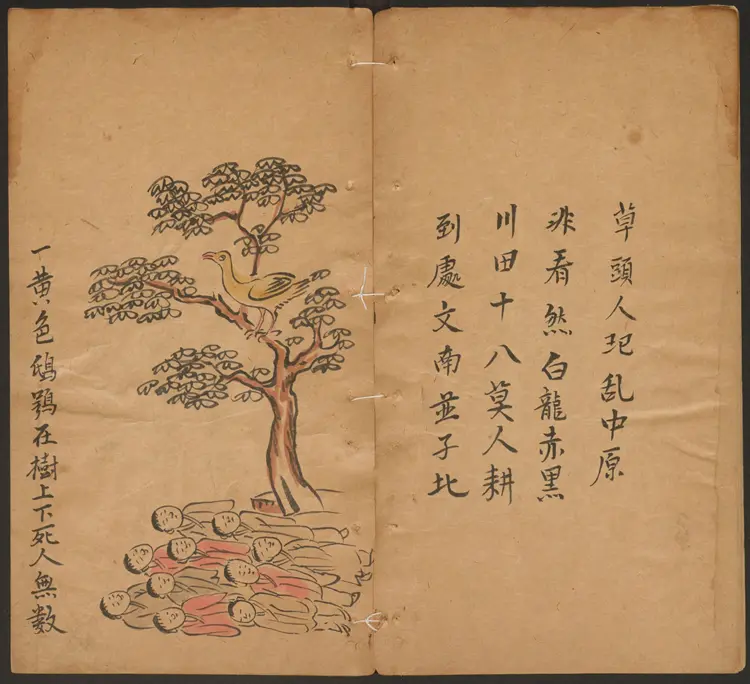 草頭人犯乱中原
非看然白龍赤黑
川田十八莫人耕
到處文南並子北
一黄色鴟鴞在樹上下死人無数